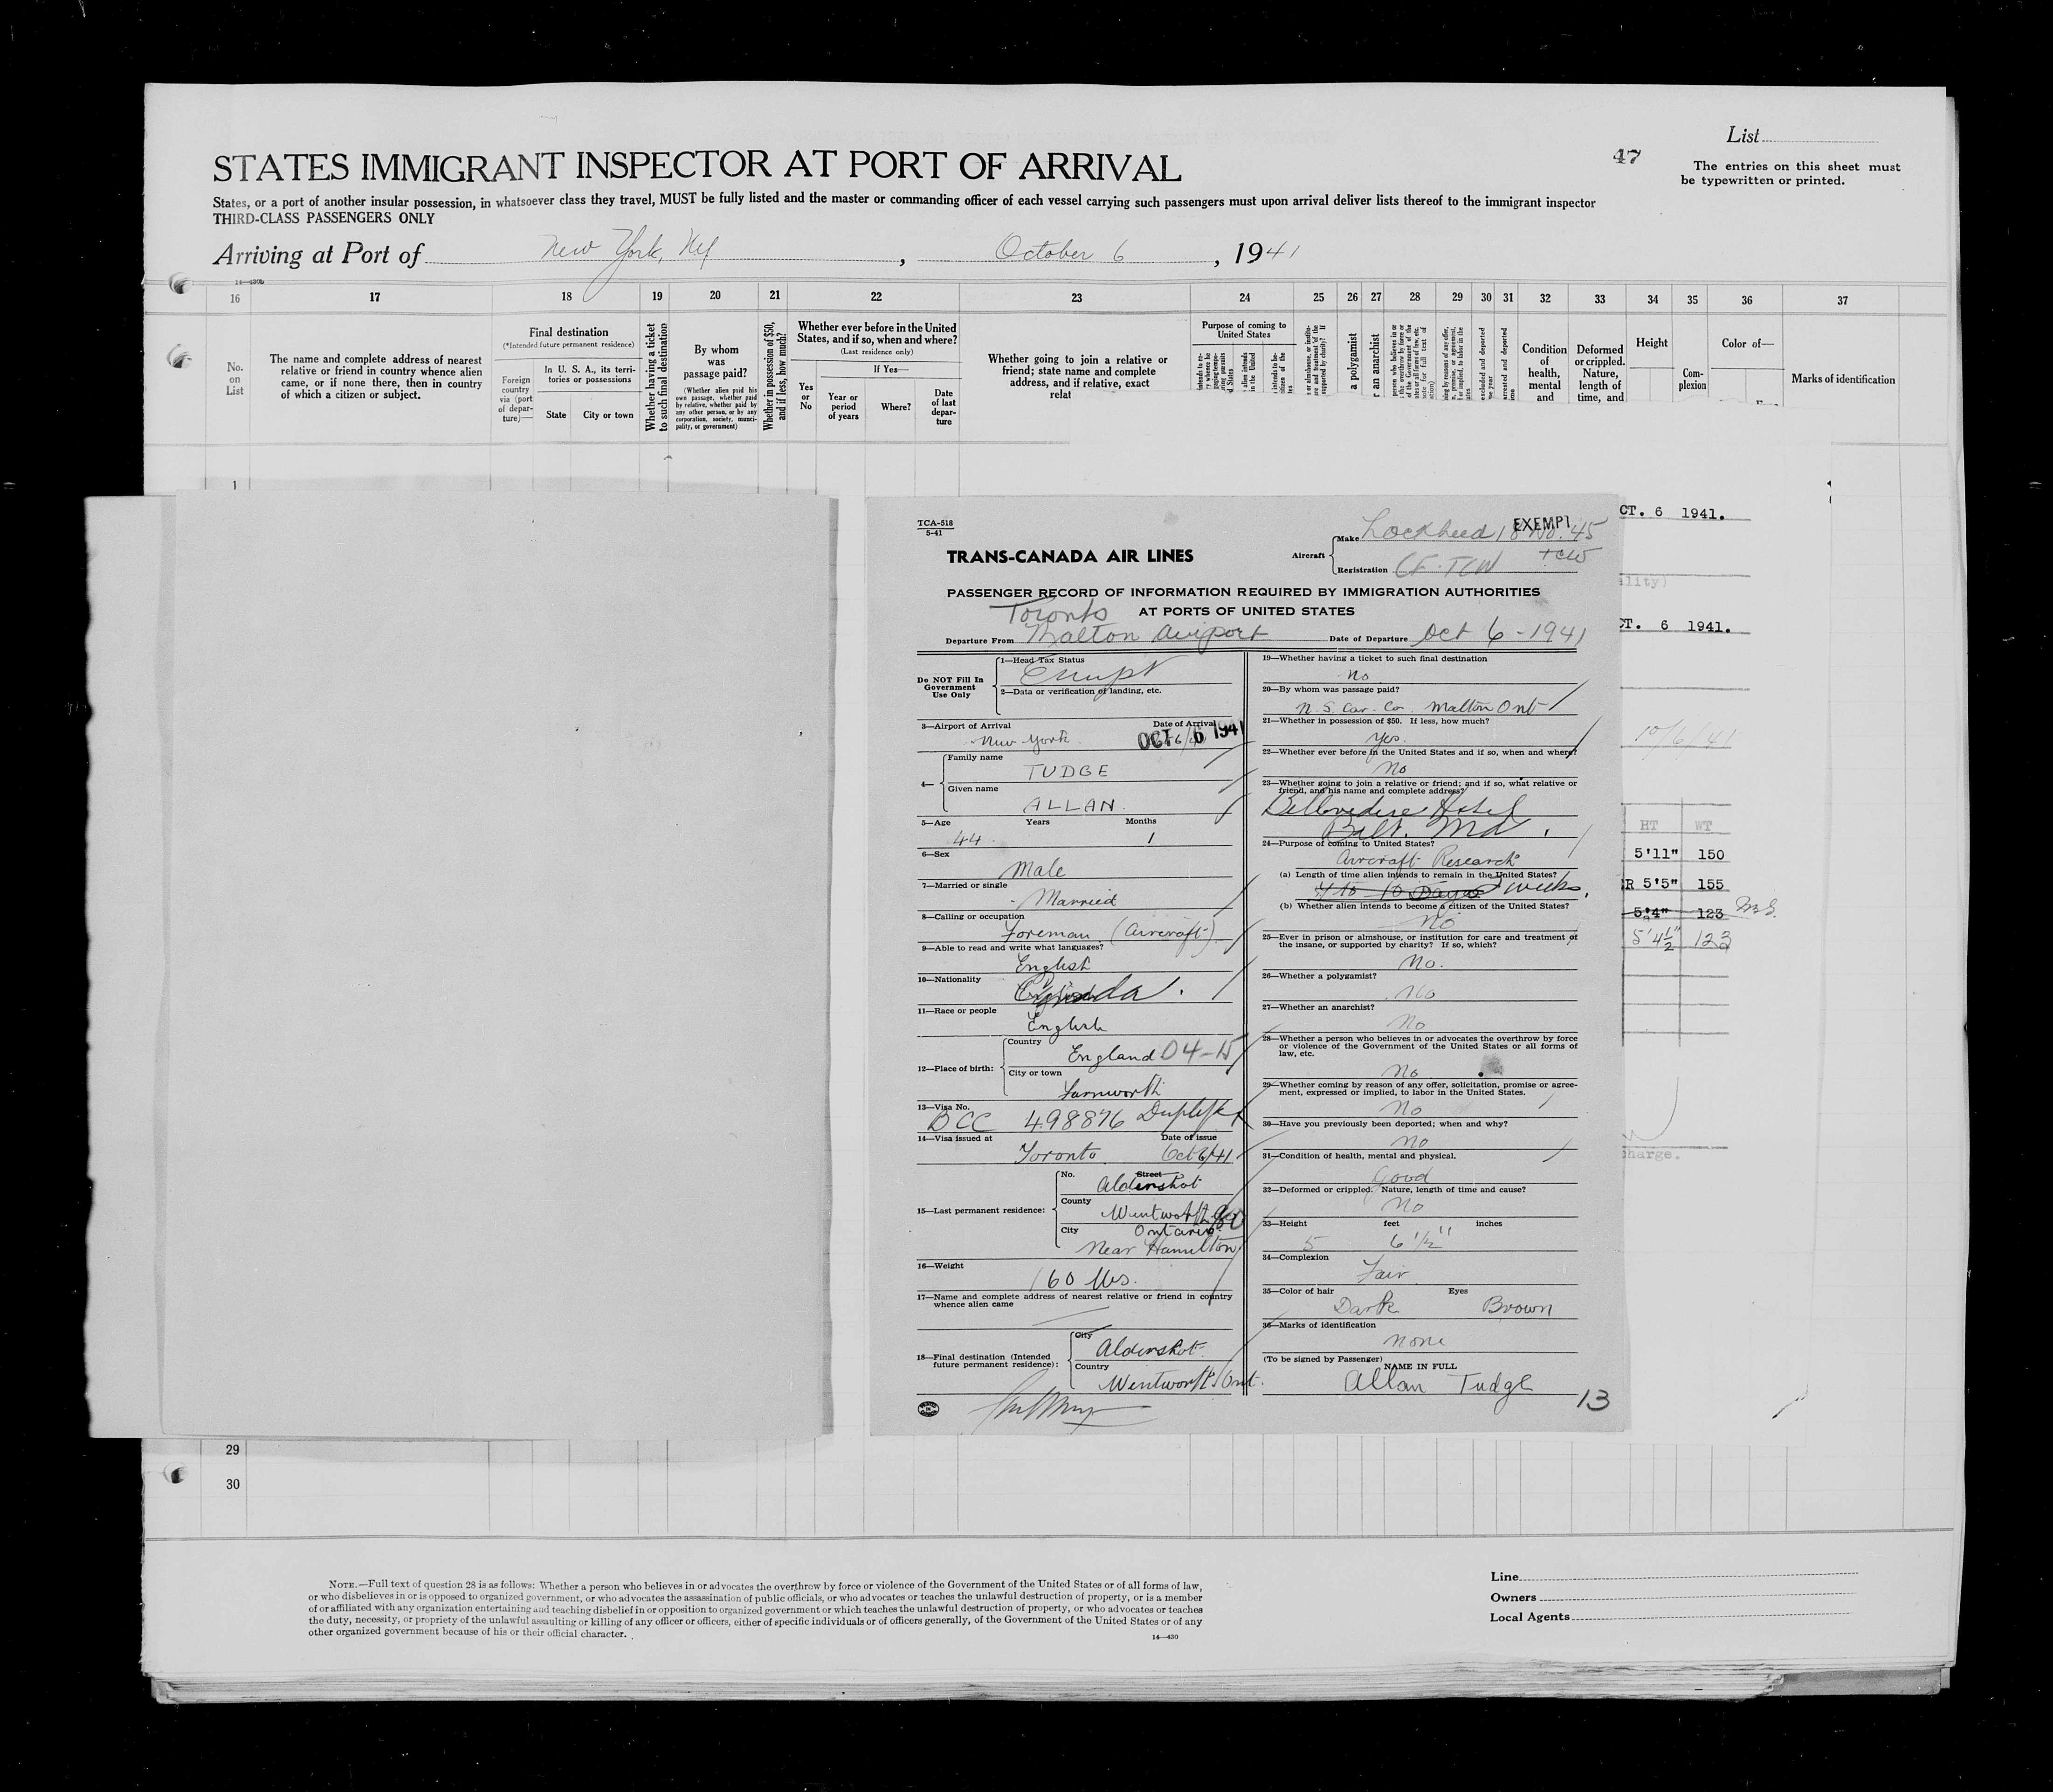 List
47
The entries on this sheet must
be typewritten or printed.
STATES IMMIGRANT INSPECTOR AT PORT OF ARRIVAL
States, or a port of another insular possession, in whatsoever class they travel, MUST be fully listed and the master or commanding officer of each vessel carrying such passengers must upon arrival deliver lists thereof to the immigrant inspector
THIRD-CLASS PASSENGERS ONLY
Arriving at Port of New York, NY, October 6, 1941
14—430b
16 17 18 19 20 21 22 23 24 25 26 27 28 29 30 31 32 33 34 35 36 37
No.
on
List
The name and complete address of nearest
relative or friend in country whence alien
came, or if none there, then in country
of which a citizen or subject.
Final destination
(*Intended future permanent residence)
Foreign
country
via (port
of depar-
ture)—
In U. S. A., its terri-
tories or possessions
State
City or town
Whether having a ticket
to such final destination
By whom
was
passage paid?
(Whether alien paid his
own passage, whether paid
by relative, whether paid by
any other person, or by any
corporation, society, munici-
pality, or government)
Whether in possession of $50,
and if less, how much?
Whether ever before in the United
States, and if so, when and where?
(Last residence only)
If Yes—
Yes
or
No
Year or
period
of years
Where?
Date
of last
depar-
ture
Whether going to join a relative or
friend; state name and complete
address, and if relative, exact
relat
Purpose of coming to
United States
a polygamist
an anarchist
Condition
of
health,
mental
and
Deformed
or crippled.
Nature,
length of
time, and
Height
Com-
plexion
Color of—
Marks of identification
1
CT. 6 1941.
ality)
CT. 6 1941.
10/6/41
HT WT
5'11" 150
R 5'5" 155
5'4" 123
5'4½" 123
harge.
TCA-518
5-41
TRANS-CANADA AIR LINES
EXEMPT
Aircraft
Make Lockheed 18 No. 45
Registration CF-TCW
TCW
PASSENGER RECORD OF INFORMATION REQUIRED BY IMMIGRATION AUTHORITIES
AT PORTS OF UNITED STATES
Toronto
Departure From Malton Airport Date of Departure Oct 6-1941
Do NOT Fill In
Government
Use Only
1—Head Tax Status
Exempt
2—Data or verification of landing, etc.
3—Airport of Arrival Date of Arrival
New York OCT 6 1941
4—
Family name
TUDGE
Given name
ALLAN.
5—Age Years Months
44 1
6—Sex
Male
7—Married or single
Married
8—Calling or occupation
Foreman (Aircraft)
9—Able to read and write what languages?
English
10—Nationality
Canada.
11—Race or people
English
12—Place of birth:
Country
England 04-N
City or town
Farnworth
13—Visa No.
BCC 498876
14—Visa issued at Date of issue
Toronto Oct 6/41
15—Last permanent residence:
No. Street
Aldershot
County
Wentworth
City Ontario
Near Hamilton
16—Weight
160 lbs.
17—Name and complete address of nearest relative or friend in country
whence alien came
18—Final destination (Intended
future permanent residence):
City
Aldershot
Country
Wentworth Ont.
19—Whether having a ticket to such final destination
no
20—By whom was passage paid?
N.S. Car. Co. Malton Ont
21—Whether in possession of $50. If less, how much?
Yes.
22—Whether ever before in the United States and if so, when and where?
No
23—Whether going to join a relative or friend; and if so, what relative or
friend, and his name and complete address?
Bellevedere Hotel
Balt. Md.
24—Purpose of coming to United States?
Aircraft Research
(a) Length of time alien intends to remain in the United States?
10 Days weeks.
(b) Whether alien intends to become a citizen of the United States?
No
25—Ever in prison or almshouse, or institution for care and treatment of
the insane, or supported by charity? If so, which?
No.
26—Whether a polygamist?
No
27—Whether an anarchist?
No
28—Whether a person who believes in or advocates the overthrow by force
or violence of the Government of the United States or all forms of
law, etc.
No
29—Whether coming by reason of any offer, solicitation, promise or agree-
ment, expressed or implied, to labor in the United States.
No
30—Have you previously been deported; when and why?
No
31—Condition of health, mental and physical.
Good
32—Deformed or crippled. Nature, length of time and cause?
No
33—Height feet inches
5 6 1/2"
34—Complexion
Fair
35—Color of hair Eyes
Dark Brown
36—Marks of identification
none
(To be signed by Passenger)
NAME IN FULL
Allan Tudge
13
29
30
NOTE.—Full text of question 28 is as follows: Whether a person who believes in or advocates the overthrow by force or violence of the Government of the United States or of all forms of law,
or who disbelieves in or is opposed to organized government, or who advocates the assassination of public officials, or who advocates or teaches the unlawful destruction of property, or is a member
of or affiliated with any organization entertaining and teaching disbelief in or opposition to organized government or which teaches the unlawful destruction of property, or who advocates or teaches
the duty, necessity, or propriety of the unlawful assaulting or killing of any officer or officers, either of specific individuals or of officers generally, of the Government of the United States or of any
other organized government because of his or their official character.
14—430
Line
Owners
Local Agents